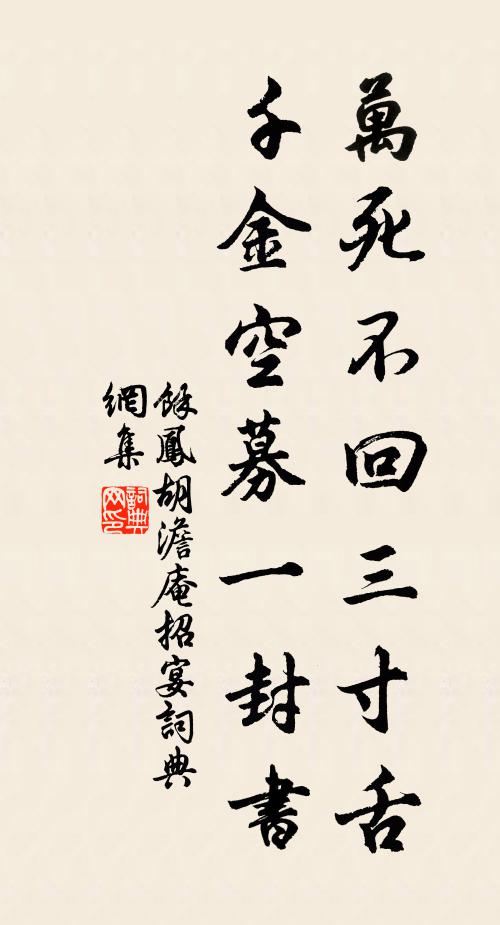 萬死不回三寸舌
千金空募一封書
餘鳳胡澹庵招宴詞典
網集
詞典网印